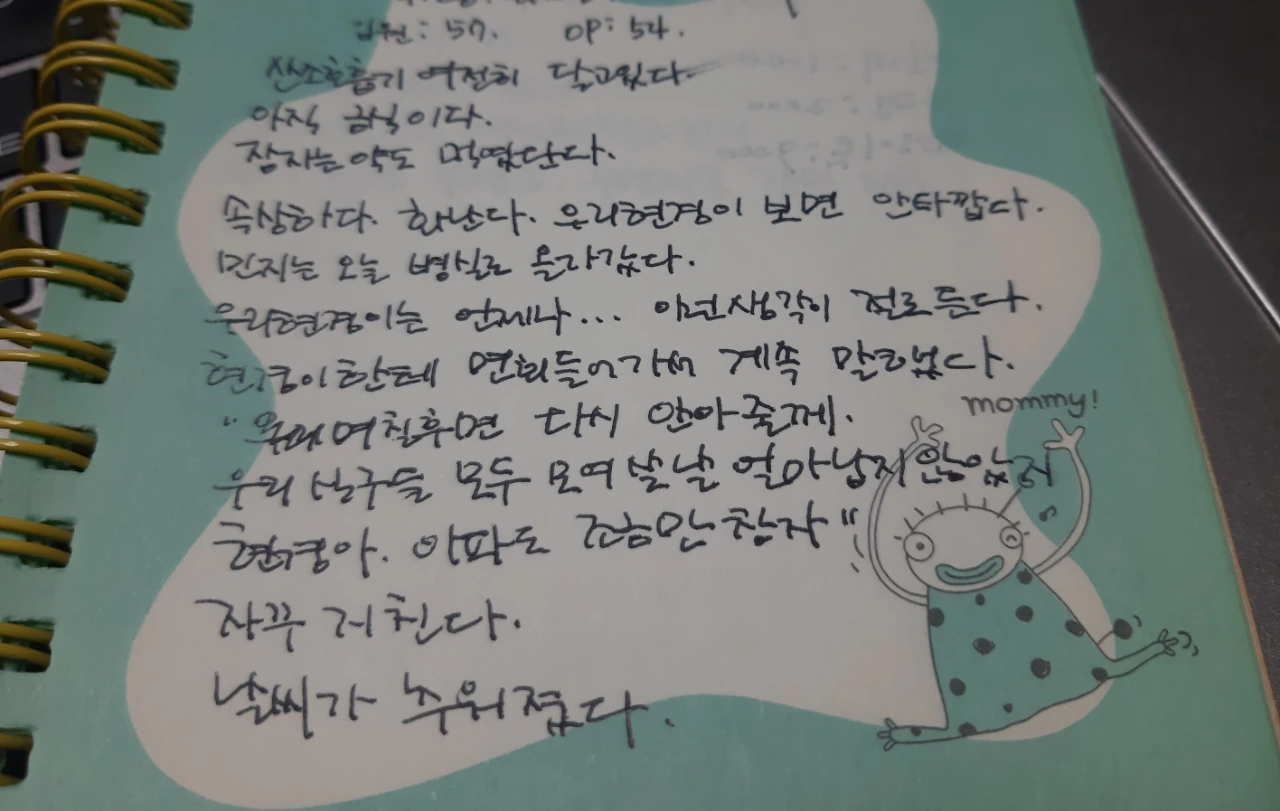 입원: 57.    OP: 54.
산소호흡기 여전히 달고있다.
아직 금식이다.
잠자는약도 먹였단다.
속상하다. 화난다. 우리현경이 보면 안타깝다.
민지는 오늘 병실로 올라갔다.
우리현경이는 언제나... 이런생각이 절로든다.
현경이한테 면회들어가서 계속 말하였다.
"몇일후면 다시 안아줄께.
우리 식구들 모두 모여살날 얼마남지않았어
현경아. 아파도 조금만참자"
자꾸 지친다.
날씨가 추워졌다.
mommy!